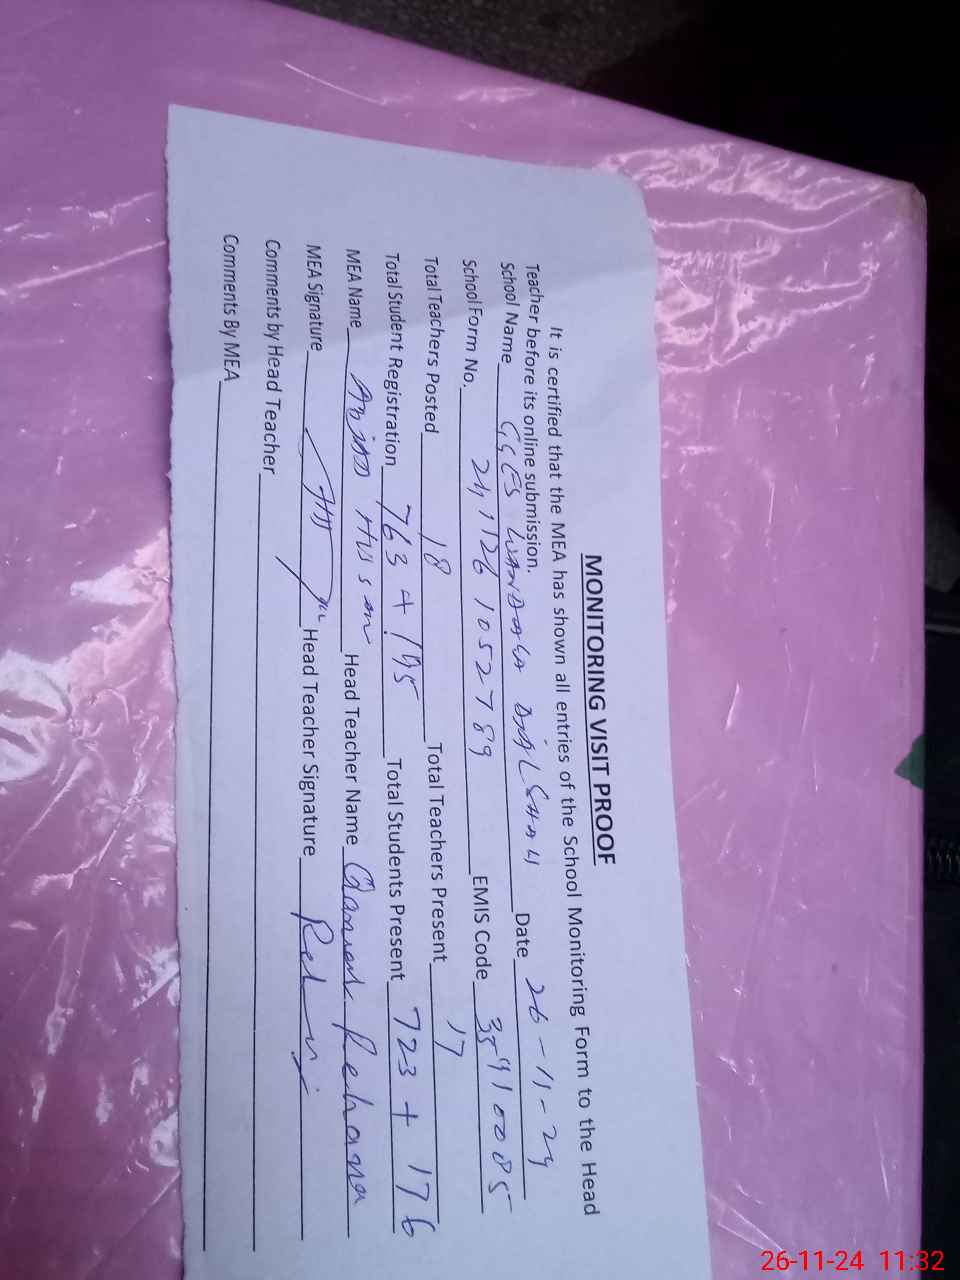 MONITORING VISIT PROOF
It is certified that the MEA has shown all entries of the School Monitoring Form to the Head
Teacher before its online submission.
School Name GGES WANDALA DIAL SHAH Date 26-11-24
School Form No. 241126 1052789 EMIS Code 35410085
Total Teachers Posted 18 Total Teachers Present 17
Total Student Registration 763 + 195 Total Students Present 723 + 176
MEA Name Head Teacher Name Rehana
MEA Signature Head Teacher Signature
Comments by Head Teacher
Comments By MEA
26-11-24 11:32